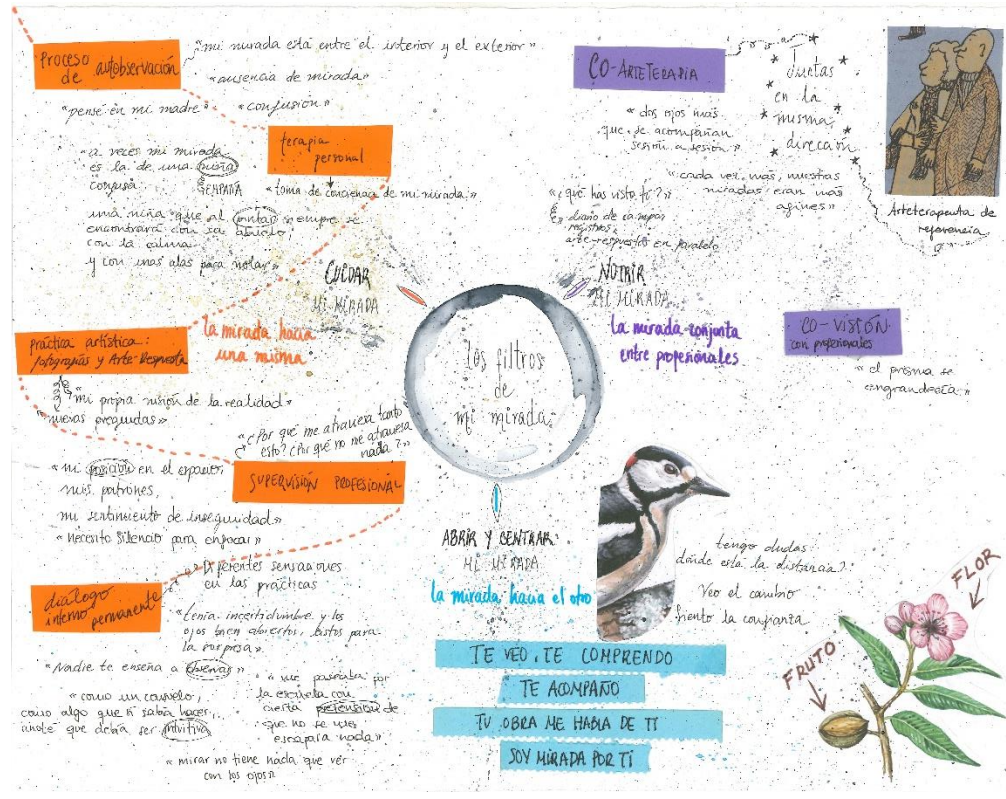 Proceso
de autobservación
«mi mirada está entre el interior y el exterior»
«ausencia de mirada»
«pensé en mi madre»
«confusión»
terapia
personal
«a veces mi mirada
es la de una niña
confusa
SEMPADA
«toma de conciencia de mi mirada»
una niña que al pintar siempre se
encontrará con su abuelo,
con la calma
y con unas alas para volar»
CUIDAR
MI MIRADA
la mirada hacia
una misma
práctica artística:
fotografías y Arte Respuesta
mi propia visión de la realidad»
«nuevas preguntas»
«¿Por qué me atraviesa tanto
esto? ¿Por qué no me atraviesa
nada?»
SUPERVISIÓN PROFESIONAL
«mi posición en el espacio,
mis patrones,
mi sentimiento de inseguridad»
«necesito silencio para enfocar»
diálogo
interno permanente
Diferentes sensaciones
en las prácticas
«tenía incertidumbre y los
ojos bien abiertos, listos para
la sorpresa»
«Nadie te enseña a observar»
«como un consuelo,
como algo que sí sabía hacer,
anoté que debía ser intuitiva
«me paseaba por
la escuela con
cierta pretensión de
que no se me
escapara nada»
«mirar no tiene nada que ver
con los ojos»
los filtros
de
mi mirada
CO-ARTETERAPIA
«dos ojos más
que te acompañan
sesión a sesión»
Juntas
en la
misma
dirección
«cada vez más, nuestras
miradas eran más
afines»
«¿qué has visto tú?»
diario de campo
registros,
arte-respuesta en paralelo
Arteterapeuta de
referencia
NUTRIR
MI MIRADA
la mirada conjunta
entre profesionales
CO-VISIÓN
con profesionales
«el prisma se
engrandecía»
ABRIR Y CENTRAR
MI MIRADA
la mirada hacia el otro
tengo dudas
dónde está la distancia?
Veo el cambio
Siento la confianza
TE VEO, TE COMPRENDO
TE ACOMPAÑO
TU OBRA ME HABLA DE TI
SOY MIRADA POR TI
FLOR
FRUTO